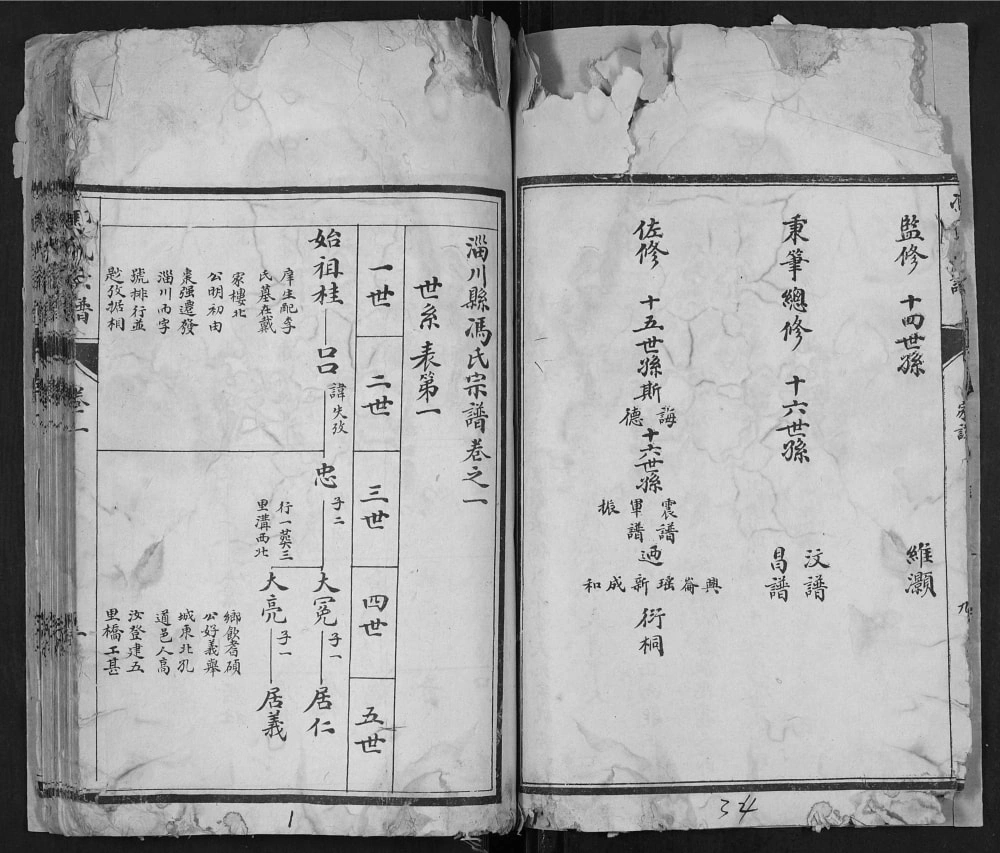 監修 十四世孫 維灝
秉筆總修 十六世孫 汶譜 昌譜
佐修 十五世孫斯 誨 德 十六世孫 震譜 軍譜 振 迺 興 崙 瑤 新 成 和 衍桐
淄川縣馮氏宗譜卷之一
世系表第一
一世 二世 三世 四世 五世
始祖桂 口口 諱失攷 忠 子二 大冕 子一 居仁
庠生配李
氏墓在戴
家樓北
公明初由
棗强遷發
淄川而字
號排行並
行一葬三
里溝西北
大亮 子一 居義
鄉飲耆碩
公好義舉
城東北孔
道邑人高
汝登建五
里橋工甚
卷一
宗譜
1
34